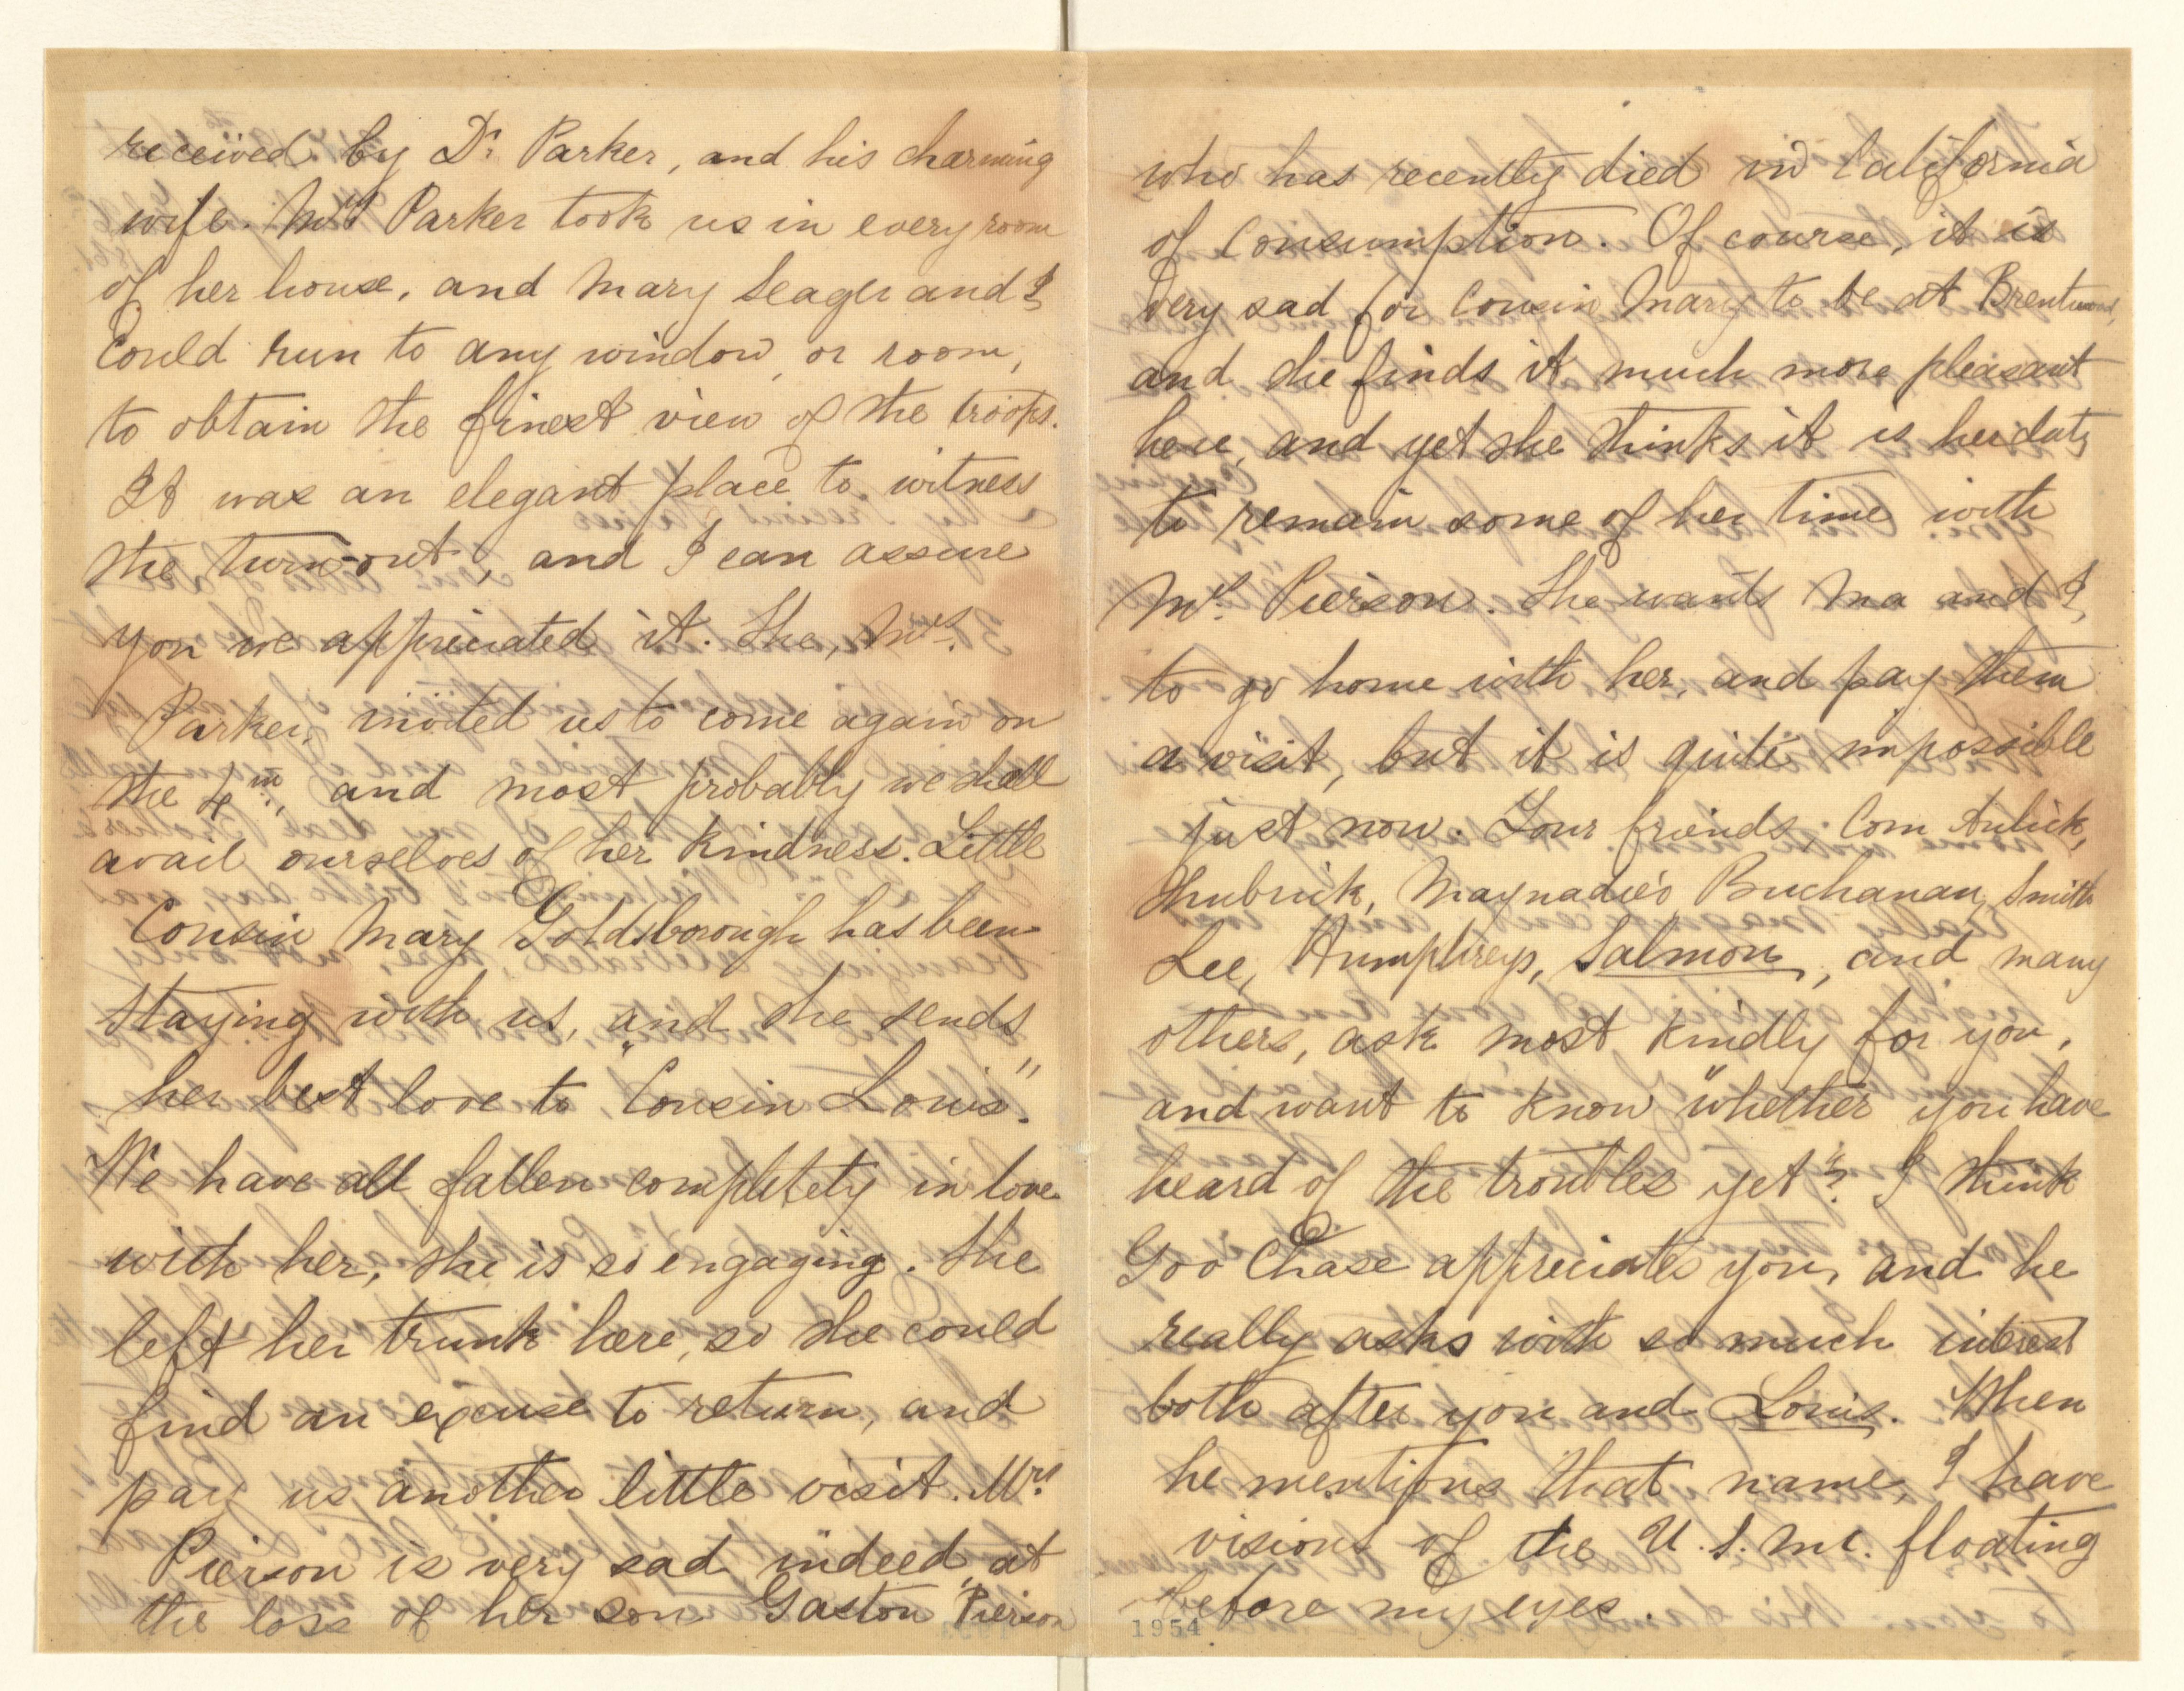 received by Dr Parker, and his charming
wife. Mrs Parker took us in every room
of her house, and Mary Seager and I
could run to any window, or room,
to obtain the finest view of the troops.
It was an elegant place to witness
the turn-out, and I can assure
you we appreciated it. She, Mrs.
Parker, invited us to come again on
the 4th, and most probably we shall
avail ourselves of her kindness. Little
Cousin Mary Goldsborough has been
staying with us, and she sends
her best love to "Cousin Louis".
We have all fallen completely in love
with her, she is so engaging. She
left her trunk here, so she could
find an excuse to return, and
pay us another little visit. Mrs
Pierson is very sad indeed, at
the loss of her son Gaston Pierson
who has recently died in California
of Consumption. Of course, it is
very sad for Cousin Mary to be at Brentwood,
and she finds it much more pleasant
here, and yet she thinks it is her duty
to remain some of her time with
Mrs. Pierson. She wants Ma and I,
to go home with her, and pay them
a visit, but it is quite impossible
just now. Your friends, Com Aulick,
Shubrick, Maynadie's Buchanan, Smith
Lee, Humphreys, Salmon, and many
others, ask most kindly for you,
and want to know "whether you have
heard of the troubles yet"? I think
Gov Chase appreciates you, and he
really asks with so much interest
both after you and Louis. When
he mentions that name, I have
visions of the U.S.M.C. floating
before my eyes.
1954